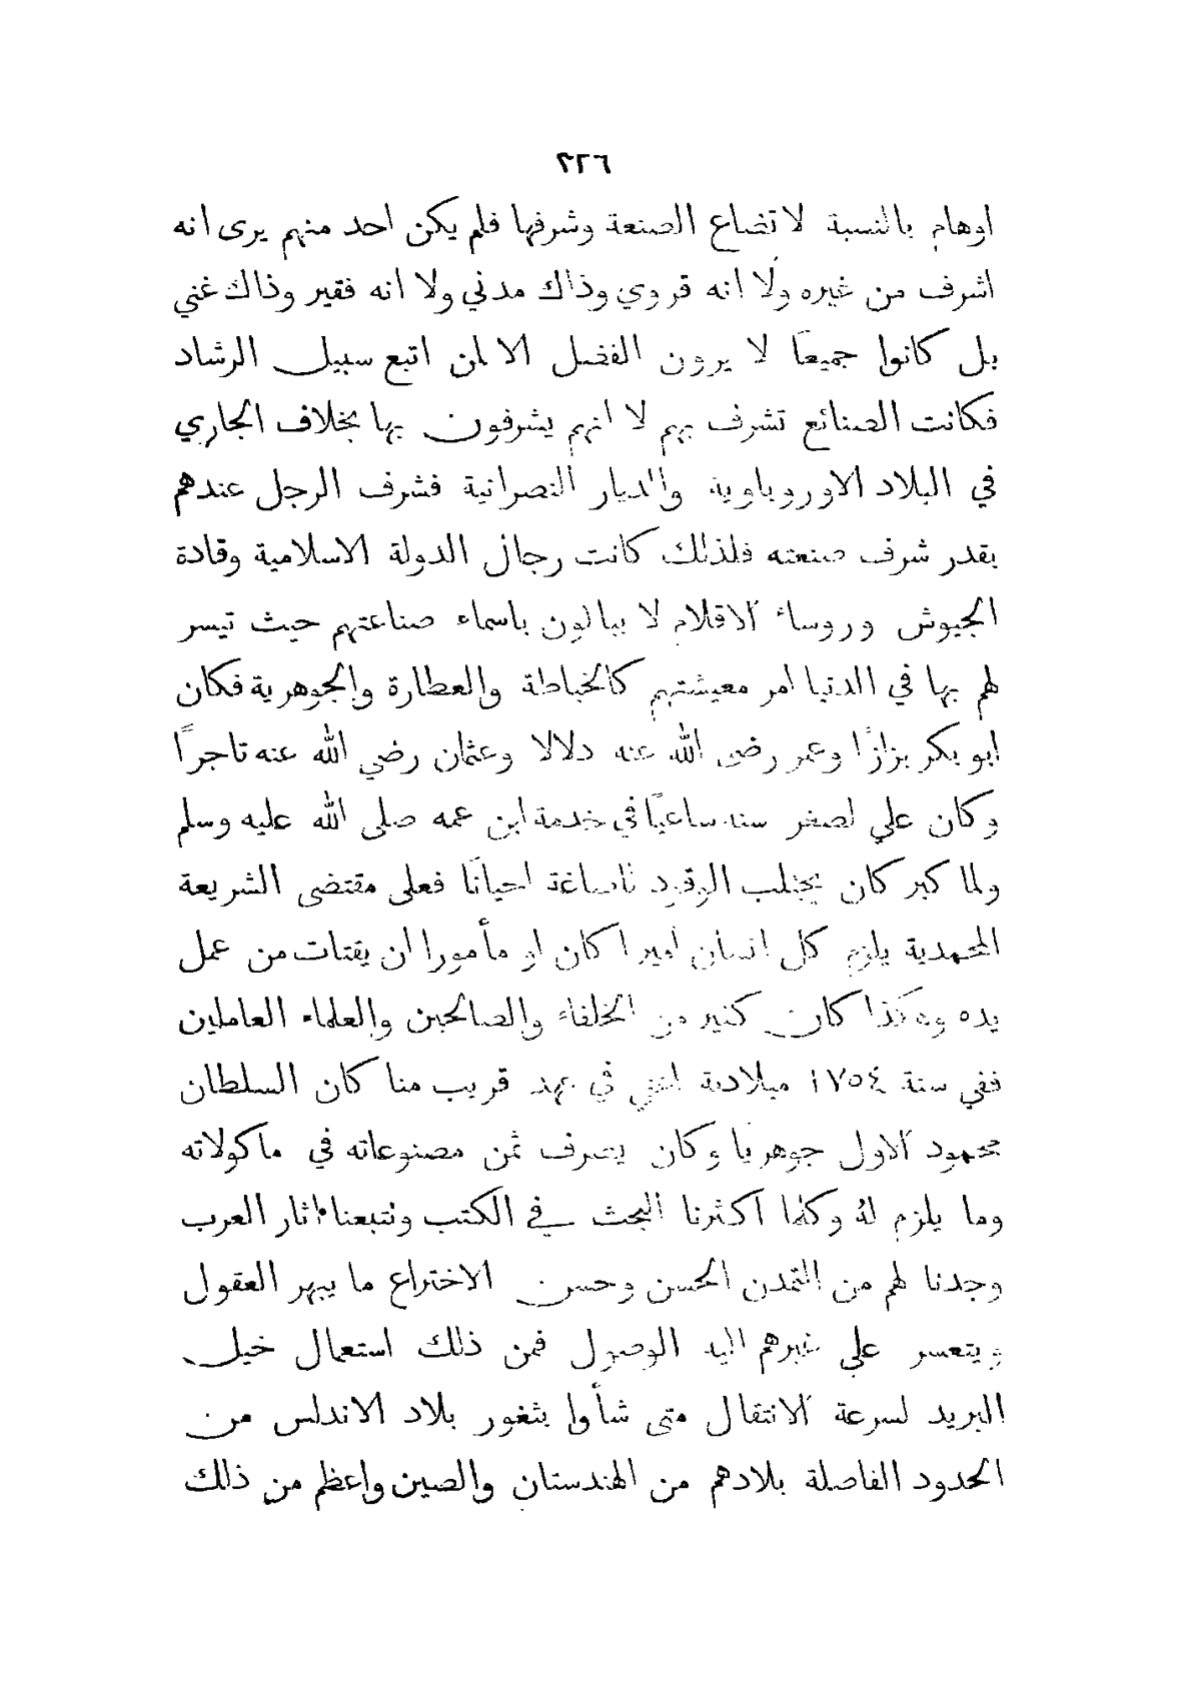 ٢٢٦
اوهام بالنسبة لاتضاع الصنعة وشرفها فلم يكن احد منهم يرى انه
اشرف من غيره ولا انه قروي وذاك مدني ولا انه فقير وذاك غني
بل كانوا جميعًا لا يرون الفضل الا لمن اتبع سبيل الرشاد
فكانت الصنائع تشرف بهم لا انهم يشرفون بها بخلاف الجاري
في البلاد الاوروباوية والديار النصرانية فشرف الرجل عندهم
بقدر شرف صنعته فلذلك كانت رجال الدولة الاسلامية وقادة
الجيوش وروساء الاقلام لا يبالون باسماء صناعتهم حيث تيسر
لهم بها في الدنيا امر معيشتهم كالخياطة والعطارة والجوهرية فكان
ابو بكر بزازًا وعمر رضي الله عنه دلالا وعثمان رضي الله عنه تاجرًا
وكان علي لصغر سنه ساعيًا في خدمة ابن عمه صلى الله عليه وسلم
ولما كبر كان يجتلب الوقود احيانًا فعلى مقتضى الشريعة
المحمدية يلزم كل انسان اميرا كان او مأمورا ان يقتات من عمل
يده وهكذا كان كثير من الخلفاء والصالحين والعلماء العاملين
ففي سنة ١٧٥٤ ميلادية اعني في عهد قريب منا كان السلطان
محمود الاول جوهريًا وكان يصرف ثمن مصنوعاته في ماكولاته
وما يلزم لهُ وكلما اكثرنا البحث في الكتب وتتبعنا اثار العرب
وجدنا لهم من التمدن الحسن وحسن الاختراع ما يبهر العقول
ويتعسر على غيرهم اليه الوصول فمن ذلك استعمال خيل
البريد لسرعة الانتقال متى شأوا بثغور بلاد الاندلس من
الحدود الفاصلة بلادهم من الهندستان والصين واعظم من ذلك